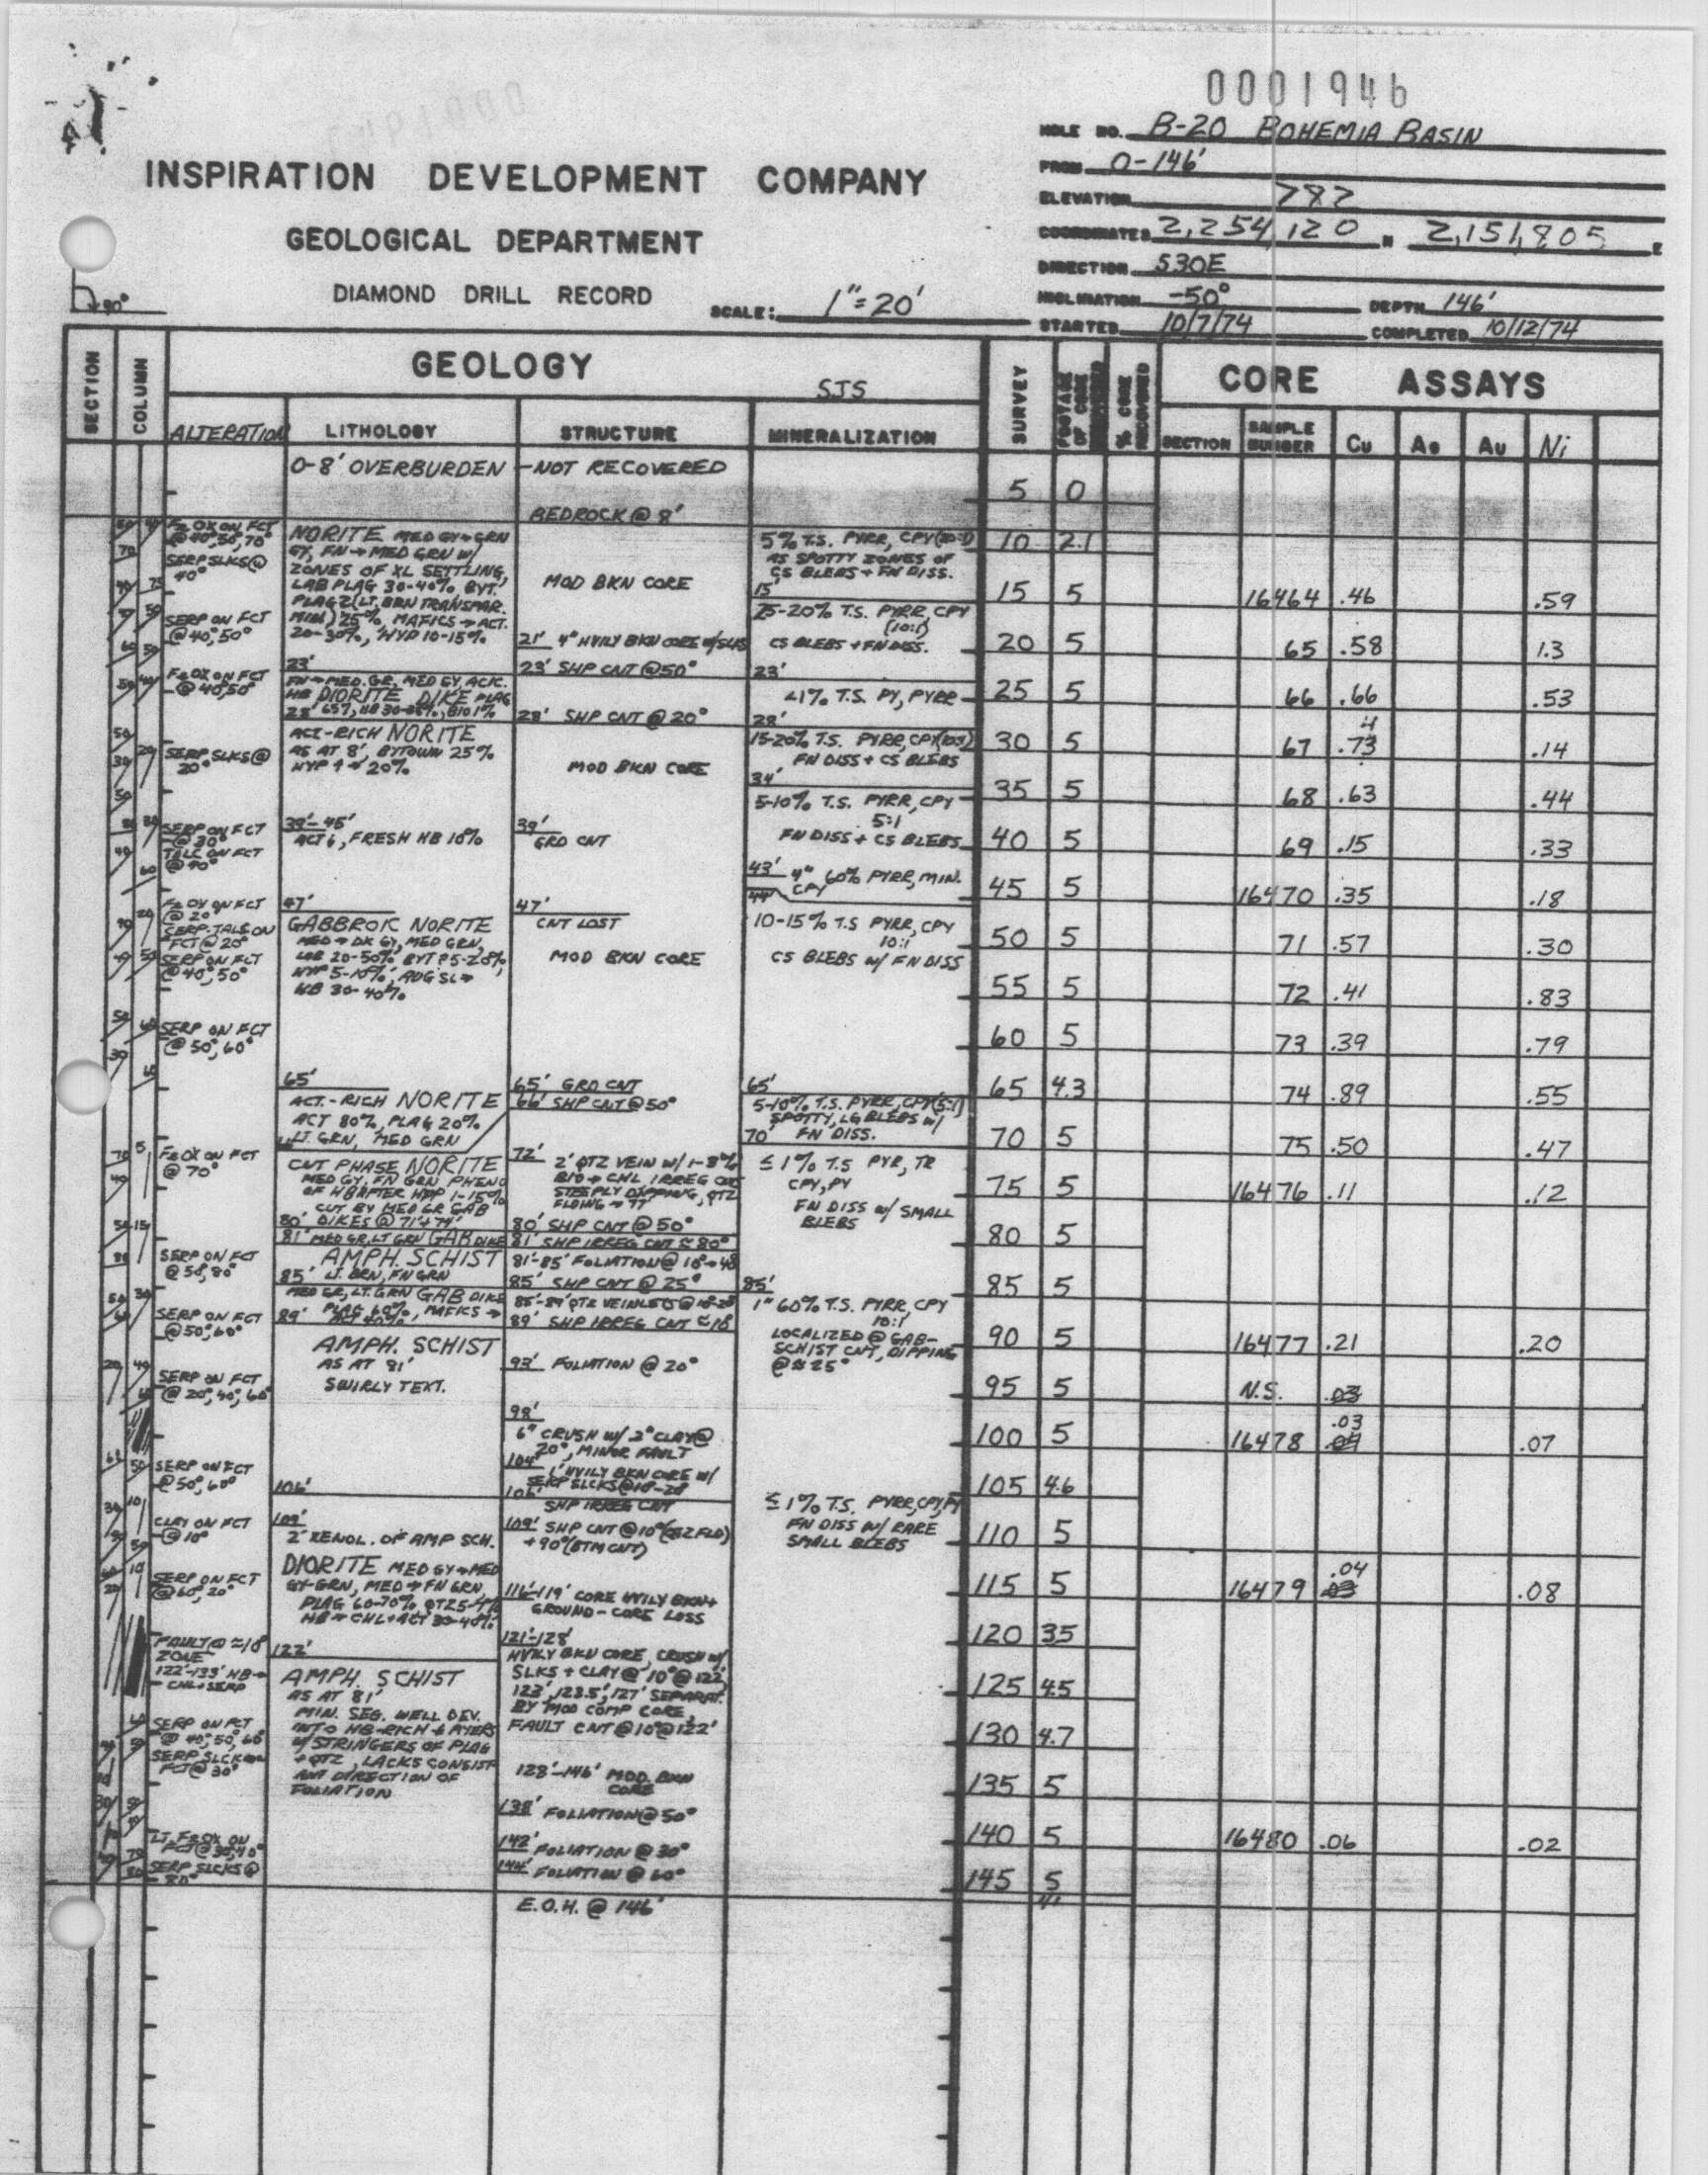 0001946
HOLE NO. B-20 BOHEMIA BASIN
FROM 0-146'
ELEVATION 782
COORDINATES 2,254,120 N 2,151,805 E
DIRECTION S30E
INCLINATION -50° DEPTH 146'
STARTED 10/7/74 COMPLETED 10/12/74
INSPIRATION DEVELOPMENT COMPANY
GEOLOGICAL DEPARTMENT
DIAMOND DRILL RECORD SCALE: 1"=20'
90°
SECTION
COLUMN
GEOLOGY
SJS
ALTERATION LITHOLOGY STRUCTURE MINERALIZATION
SURVEY
FOOTAGE OF CORE
% CORE RECOVERED
CORE ASSAYS
SECTION SAMPLE NUMBER Cu Au Ni
FE OX ON FCT
@ 40°, 50°, 70°
SERP SLKS @
40°
SERP ON FCT
@ 40°, 50°
FE OX ON FCT
@ 40°, 50°
SERP SLKS @
20°
SERP ON FCT
@ 30°
TALC ON FCT
@ 40°
FE OX ON FCT
@ 20°
SERP-TALC ON
FCT @ 20°
SERP ON FCT
@ 40°, 50°
SERP ON FCT
@ 50°, 60°
FE OX ON FCT
@ 70°
SERP ON FCT
@ 50°, 80°
SERP ON FCT
@ 50°, 60°
SERP ON FCT
@ 20°, 40°, 60°
SERP ON FCT
@ 50°, 60°
CLAY ON FCT
@ 10°
SERP ON FCT
@ 60°, 20°
FAULT @ ≈10°
ZONE
122'-133' HB→
CHL+SERP
SERP ON FCT
@ 40°, 50°, 60°
SERP SLCK ON
FCT @ 30°
LT. FE OX ON
SERP SLCKS @
80°
0-8' OVERBURDEN - NOT RECOVERED
BEDROCK @ 8'
NORITE MED GY→GRN
GY, FN→MED GRN W/
ZONES OF XL SETTLING,
LAB PLAG 30-40% BYT.
PLAG? (LT. BRN TRANSPAR.
MIN.) 25%, MAFICS→ACT.
20-30%, HYP 10-15%
23'
FN→MED. GR, MED GY, ACIC.
HB DIORITE DIKE PLAG
28'
ACT-RICH NORITE
AS AT 8', BYTOWN 25%
HYP ↑ 20%
39'-45'
ACT ↓, FRESH HB 10%
47'
GABBROIC NORITE
MED→DK GY, MED GRN,
HYP 5-10%, AUG SL→
HB 30-40%
65'
ACT.-RICH NORITE
ACT 80%, PLAG 20%
LT. GRN, MED GRN
CNT PHASE NORITE
MED GY, FN GRN PHENO
CUT BY MED GR GAB
80' DIKES @ 71'+74'
81' MED GR, LT GRN GAB DIKE
AMPH. SCHIST
85' LT. BRN, FN GRN
MED GR, LT. GRN GAB DIKE
89' PLAG 60%, MAFICS→
ACT 40%
AMPH. SCHIST
AS AT 81'
SWIRLY TEXT.
106'
109'
2" XENOL. OF AMP SCH.
DIORITE MED GY→MED
GY-GRN, MED→FN GRN,
PLAG 60-70% QTZ 5-
HB→CHL+ACT 30-40%
122'
AMPH. SCHIST
AS AT 81'
MIN. SEG. WELL DEV.
INTO HB-RICH LAYERS
W/ STRINGERS OF PLAG
+ QTZ, LACKS CONSIST
ANT DIRECTION OF
FOLIATION
MOD BKN CORE
21' 4" HVILY BKN CORE W/ SLKS
23' SHP CNT @ 50°
28' SHP CNT @ 20°
MOD BKN CORE
39'
GRD CNT
47'
CNT LOST
MOD BKN CORE
65' GRD CNT
66' SHP CNT @ 50°
72' 2' QTZ VEIN W/
BIO→CHL IRREG CNT
STEEPLY DIPPING, QTZ
80' SHP CNT @ 50°
81' SHP IRREG CNT ≈ 80°
81'-85' FOLIATION @ 10°→40°
85' SHP CNT @ 25°
85'-89' QTZ VEINLETS @ 10-20°
89' SHP IRREG CNT ≈ 10°
93' FOLIATION @ 20°
98'
6" CRUSH W/ 2" CLAY @
20°, MINOR FAULT
104'
1' HVILY BKN CORE W/
SERP SLCKS @ 10°-20°
106'
SHP IRREG CNT
109' SHP CNT @ 10°
+ 90° (BTM CNT)
116'-119' CORE HVILY BKN+
GROUND-CORE LOSS
121'-128'
HVILY BKN CORE, CRUSH W/
SLKS + CLAY @ 10° @ 122',
123', 123.5', 127' SEPARAT.
BY MOD COMP CORE,
FAULT CNT @ 10° @ 122'
128'-146' MOD. BKN
CORE
138' FOLIATION @ 50°
142' FOLIATION @ 30°
144' FOLIATION @ 60°
E.O.H. @ 146'
5% T.S. PYRR, CPY
AS SPOTTY ZONES OF
CS BLEBS + FN DISS.
15'
T.S. PYRR, CPY
(10:1)
CS BLEBS + FN DISS.
23'
<1% T.S. PY, PYRR
28'
15-20% T.S. PYRR, CPY
FN DISS + CS BLEBS
34'
5-10% T.S. PYRR, CPY
5:1
FN DISS + CS BLEBS
43' 4" 60% PYRR, MIN.
44' CPY
10-15% T.S PYRR, CPY
10:1
CS BLEBS W/ FN DISS
65'
5-10% T.S. PYRR, CPY (5:1)
SPOTTY, LG BLEBS W/
70' FN DISS.
≤1% T.S PYR, TR
CPY, PY
FN DISS W/ SMALL
BLEBS
85'
1" 60% T.S. PYRR, CPY
10:1
LOCALIZED @ GAB-
SCHIST CNT, DIPPING
@ ≈ 25°
≤1% T.S. PYRR, CPY, PY
FN DISS W/ RARE
SMALL BLEBS
5 0
10 2.1
15 5 16464 .46 .59
20 5 65 .58 1.3
25 5 66 .66 .53
4
30 5 67 .73 .14
35 5 68 .63 .44
40 5 69 .15 .33
45 5 16470 .35 .18
50 5 71 .57 .30
55 5 72 .41 .83
60 5 73 .39 .79
65 4.3 74 .89 .55
70 5 75 .50 .47
75 5 16476 .11 .12
80 5
85 5
90 5 16477 .21 .20
95 5 N.S. .03
.03
100 5 16478 .07
105 4.6
110 5
.04
115 5 16479 .03 .08
120 3.5
125 4.5
130 4.7
135 5
140 5 16480 .06 .02
145 5